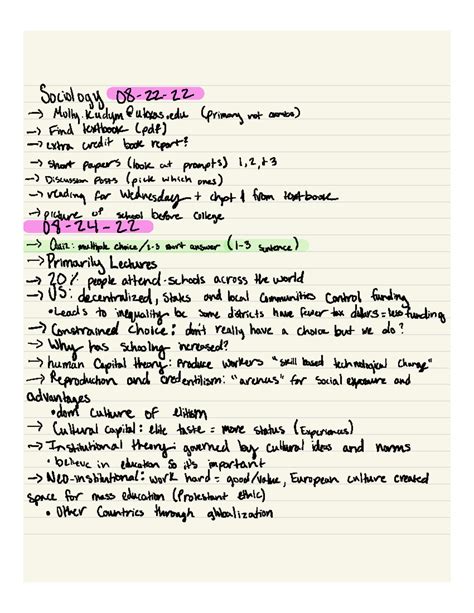 Sociology 08-22-22
→ Molly.Kudym@utexas.edu (primary not canvas)
→ Find textbook (pdf)
→ extra credit book report?
→ short papers (look at prompts) 1,2,+3
→ Discussion Posts (pick which ones)
→ reading for Wednesday + chpt 1 from textbook
→ picture of school before college
08-24-22
→ Quiz: multiple choice/1-3 short answer (1-3 sentence)
→ Primarily Lectures
→ 20% people attend schools across the world
→ US: decentralized, states and local communities control funding
• Leads to inequality bc some districts have fewer tax dollars = less funding
→ Constrained choice: don't really have a choice but we do?
→ Why has schooling increased?
→ human capital theory: produce workers "skill based technological change"
→ Reproduction and credentilism: "arenus" for social exposure and
advantages
• dom culture of elitism
→ Cultural capital: elite taste = more status (Experiences)
→ Institutional theory: governed by cultural ideas and norms
• believe in education so it's important
→ Neo-institutional: work hard = good/value, European culture created
space for mass education (Protestant Ethic)
• Other Countries through globalization